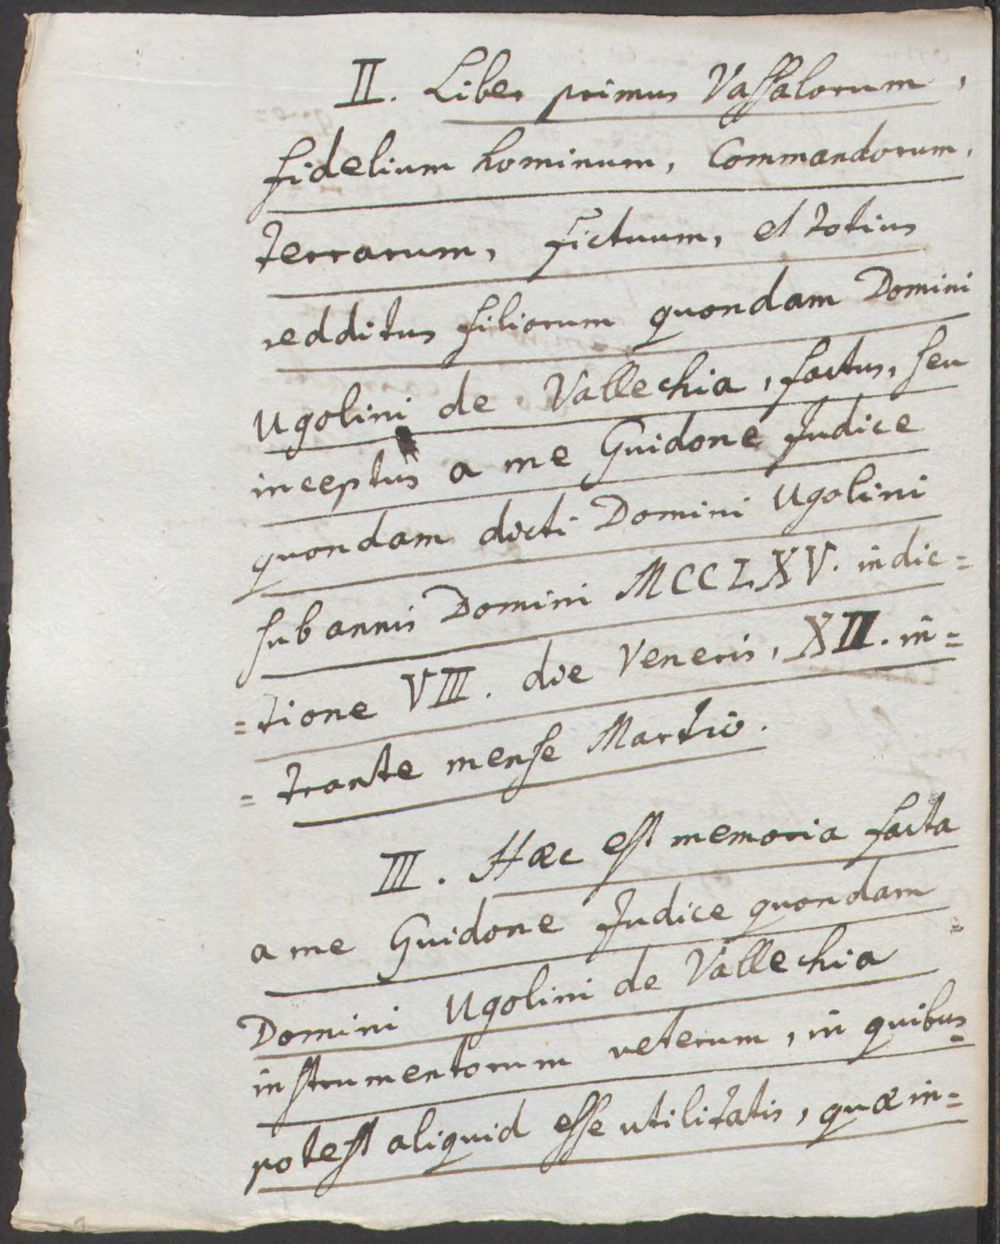 II. Liber primus Vassalorum,
fidelium hominum, Commandorum,
terrarum, fictuum, et totius
redditus filiorum quondam Domini
Ugolini de Vallechia, factus, seu
inceptus a me Guidone Judice
quondam dicti Domini Ugolini
sub annis Domini MCCLXV. indic=
=tione VIII. die Veneris, XII. in=
=trante mense Martio.
III. Hæc est memoria facta
a me Guidone Judice quondam
Domini Ugolini de Vallechia
instrumentorum veterum, in quibus
potest aliquid esse utilitatis, quæ in=